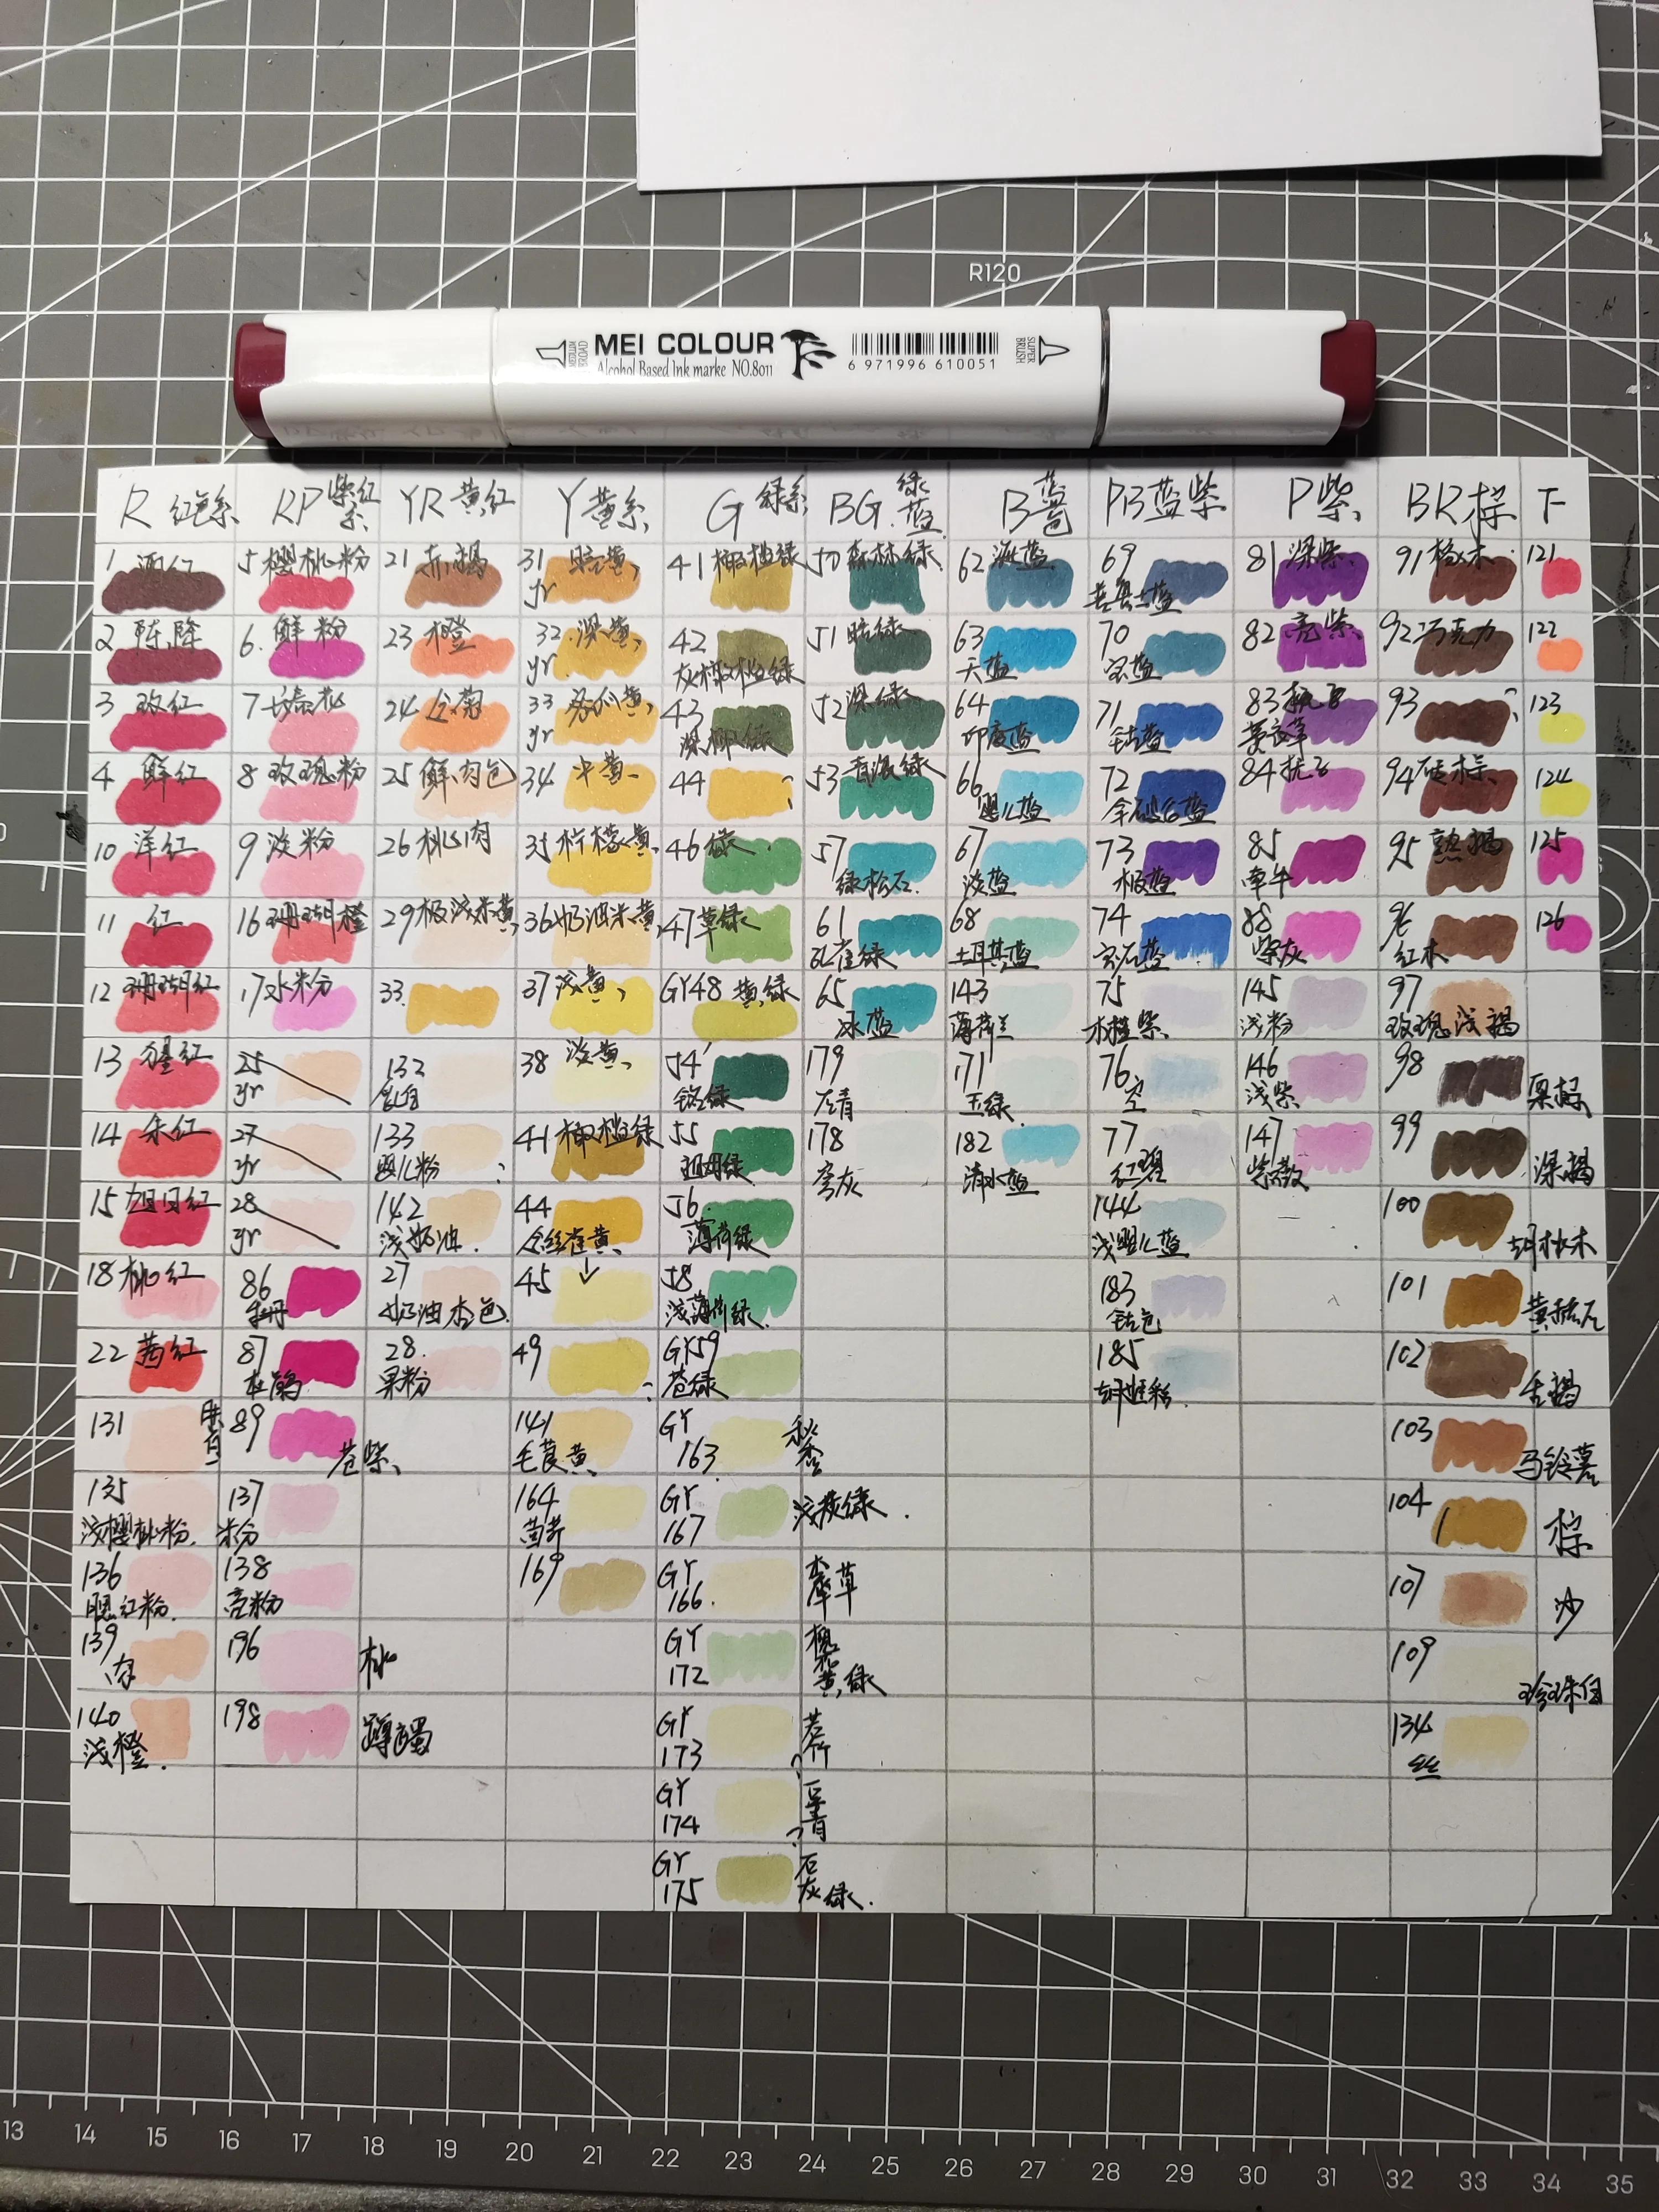 R120
MEI COLOUR
Alcohol Based Ink marke NO.8011
6 971996 610051
SUPER BRUSH
R 红色系 RP 紫红系 YR 黄红 Y 黄系 G 绿系 BG 绿蓝 B 蓝 PB 蓝紫 P 紫 BR 棕 F
1 酒红 5 樱桃粉 21 赤褐 31 yr 41 橄榄绿 50 森林绿 62 海蓝 69 普鲁士蓝 81 深紫 91 121
2 6 鲜粉 23 橙 32 深黄 yr 42 灰橄榄绿 51 暗绿 63 天蓝 70 82 亮紫 92 巧克力 122
3 玫红 7 24 金菊 33 yr 43 深橄绿 52 深绿 64 印度蓝 71 钴蓝 83 93 123
4 鲜红 8 玫瑰粉 25 鲜肉色 34 中黄 44 53 66 婴儿蓝 72 84 94 124
10 洋红 9 淡粉 26 桃肉 35 柠檬黄 46 绿 57 绿松石 67 淡蓝 73 极蓝 85 牵牛 95 熟褐 125
11 红 16 珊瑚橙 29 极浅米黄 36 奶油米黄 47 草绿 61 孔雀绿 68 土耳其蓝 74 宝石蓝 88 紫灰 96 红木 126
12 珊瑚红 17 水粉 33 37 浅黄 GY48 黄绿 65 冰蓝 143 75 木槿紫 145 浅粉 97 玫瑰浅褐
13 猩红 25 yr 132 乳白 38 淡黄 54 铬绿 179 171 玉绿 76 空 146 浅紫 98 栗棕
14 朱红 27 yr 133 婴儿粉 41 橄榄绿 55 祖母绿 178 182 清水蓝 77 147 紫薇 99 深褐
15 旭日红 28 yr 142 浅奶油 44 金丝雀黄 56 薄荷绿 144 浅婴儿蓝 100 胡桃木
18 桃红 86 27 奶油杏色 45 58 浅薄荷绿 183 101 黄赭石
22 茜红 87 杜鹃 28 果粉 49 GY59 苍绿 185 102
131 89 苍紫 141 毛茛黄 GY 163 103 马铃薯
135 浅樱桃粉 137 米分 164 GY 167 浅灰绿 104 棕
136 腮红粉 138 亮粉 169 GY 166 107 沙
139 肉 196 桃 GY 172 黄绿 109 珍珠白
140 浅橙 198 GY 173 134
GY 174 豆青
GY 175 石灰绿
13 14 15 16 17 18 19 20 21 22 23 24 25 26 27 28 29 30 31 32 33 34 35